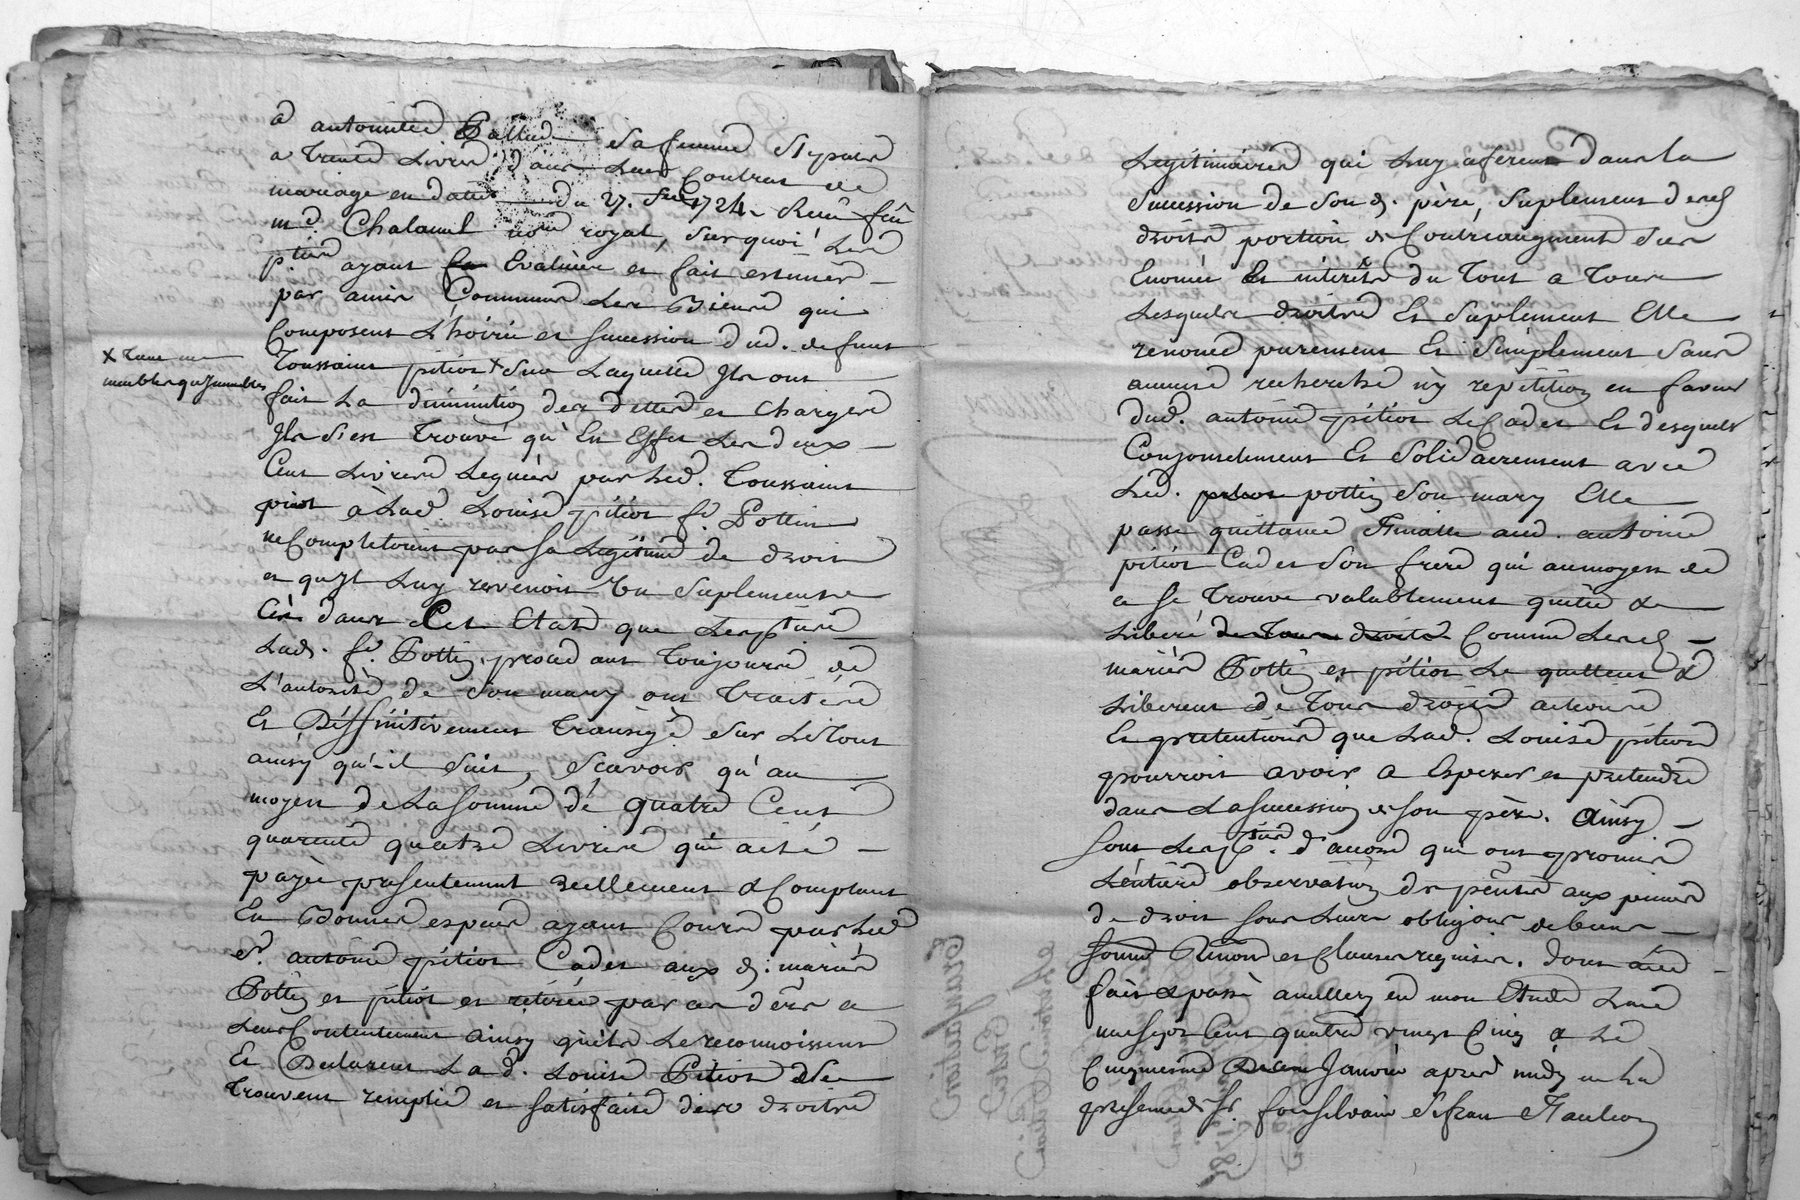 a antoinette Pallud sa femme
a trente Livres, dans leur Contrat de
mariage en datte du 27. 1724. Receu feu
m.e Chalamel no.re royal, surquoi Les
p.ties ayant Evaluer et fait estimer
par amis Communs Les Biens qui
Composent L'hoirie et succession dud. defunt
Toussaint pitiot x sur Laquelle Ils ont
x tant en
meubles qu'Immeubles
fait La diminution des dettes et Charges
Ils s'est trouvé qu'En Effet Les deux
Cent Livres Leguées par Led. Toussaint
pitiot à Lad. Louise pitiot f.e Pottin
ne Completoient pas sa Legitime de droit
et qu'Il Luy revenoit Un suplement
dans Cet Etat que Lesp.ties
Lad. f.e Pottin, procedant toujours de
L'autorité de son mary ont traitéré
Et Deffinitivement transigé sur LeTout
ainsy qu'il suit, scavoir qu'au
moyen de La somme de quatre Cent
quarente quatre Livres qui a eté
payée presentement reellement & Comptant
En Bonnes espèces ayant Cours par Led
S.r antoine pitiot Cadet aux d. mariés
Pottin et pitiot et retirée par ces ders a
Leur Contentement ainsy qu'ils Le reconnoissent
Et Declarent Lad. Louise Pitiot s'en
trouvent remplie et satisfaite des droits
Legitimaires qui Luy aferent dans la
succession de Son d. père, suplement desd
droits portion de Contreaugment
Et intérêts du Tout a Tous
Lesquels droits Et suplement Elle
renonce purement Et simplement sans
aucune recherche n'y repétition en faveur
dud. antoine pitiot Le Cadet Et desquels
Conjointement Et Solidairement avec
Led. pottin son mary Elle
passe quittance Finalle aud. antoine
pitiot Cadet son frere qui au moyen de
ce se trouve valablement quitte &
Liberé de Tous droits Comme Lesd
mariés Pottin et pitiot Le quittent &
Liberent de Tous droits actions
Et pretentions que Lad. Louise pitiot
pourroit avoir a Esperer et pretendre
dans La succession de son père. Ainsy
sont Lesp.ties d'accord qui ont promis
L'entiere observation des pntes aux peines
de droit sous Leurs obligaons de biens
et Clauses requises. Dont acte
fait & passé amillery en mon Etude L'an
mil sept Cent quatre vingt Cinq & Le
Cinquieme Janvier après midy en La
presence de S.r